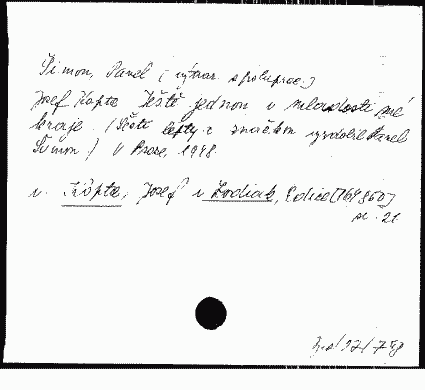 Šimon, Pavel (výtvar. spoluprac.)
Josef Kopta Ještě jednou v mladosti své
kraje. (Šesti lepty a značkou vyzdobil Pavel
Šimon.) V Praze, 1948.
v. Kopta, Josef v Zodiak, Edice [164860]
sv. 21